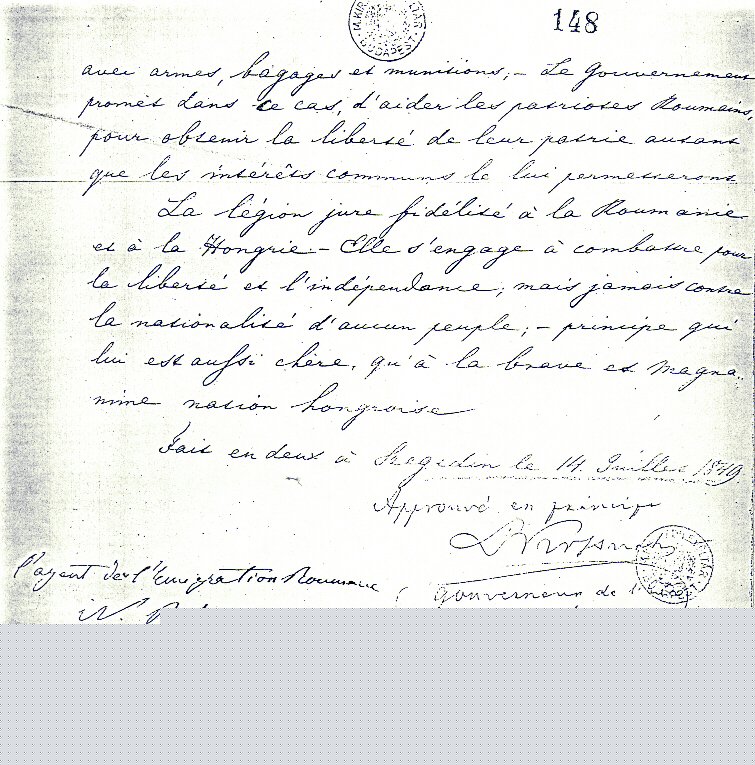 148
avec armes, bagages et munitions; – Le Gouvernement
promet dans ce cas, d'aider les patriotes Roumains,
pour obtenir la liberté de leur patrie autant
que les intérêts communs le lui permetteront
La légion jure fidélité à la Roumanie
et à la Hongrie – Elle s'engage à combattre pour
la liberté et l'indépendance; mais jamais contre
la nationalité d'aucun peuple; – principe qui
lui est aussi chère, qu'à la brave et magna-
nime nation hongroise
Fait en deux à Szegedin le 14. Juillet 1849
Approuvé en principe
l'agent de l'Emigration Roumaine
Gouverneur de l'
N.
BUDAPEST